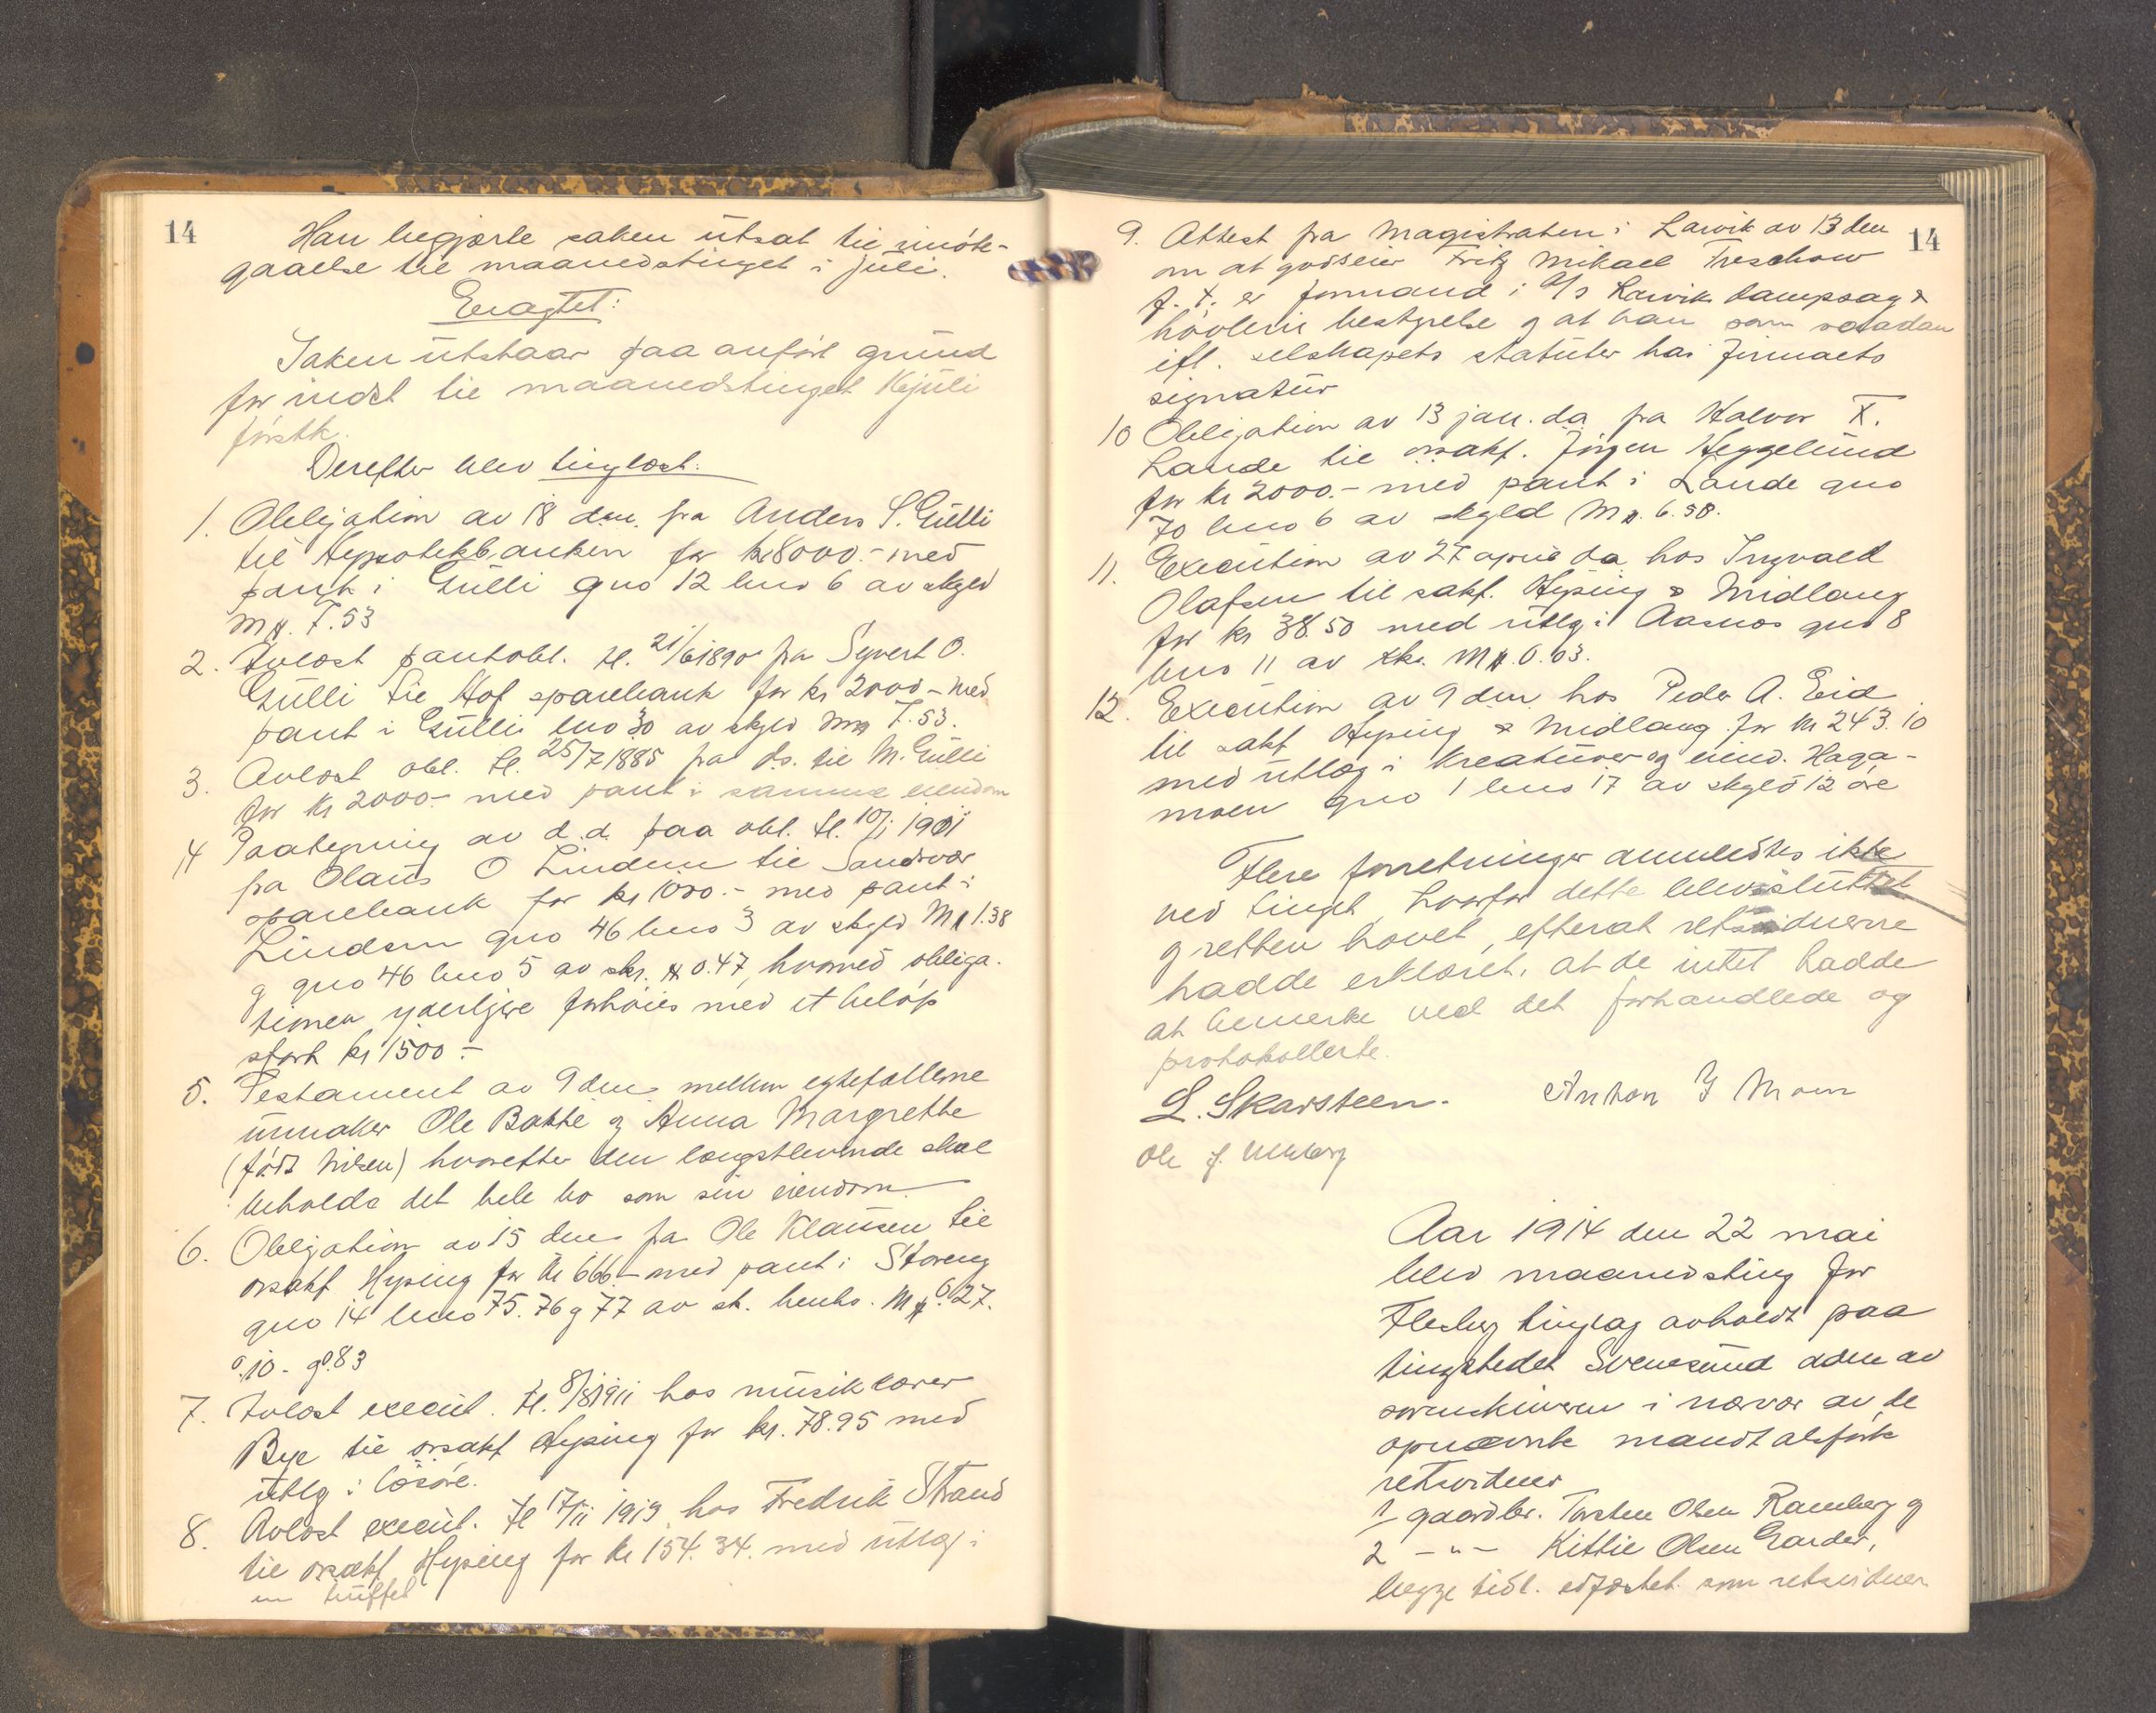 14
Han begjærte saken utsat til imøte-
gaaelse til maanedstinget i juli.
Eragtet:
Saken utstaar paa anført grund
for indst til maanedstinget juli
førstk.
Derefter blev tinglæst:
1. Obligation av 18 dm. fra Anders S. Gulli
til Hypotekbanken for kr 8000.- med
pant i Gulli gno 12 bno 6 av skyld
Mk. 7.53
2. Avlæst pantobl. tl. 21/6 1890 fra Syvert O.
Gulli til Hof sparebank for kr 2000 - med
pant i Gulli lno 30 av skyld Mk 7.53.
3. Avlæst obl. tl. 25/7 1885 fra ds. til M. Gulli
for kr 2000.- med pant i samme eiendom
4 Paategning av d.d. paa obl. tl. 10/1 1901
fra Olaus O Lindem til Sandsvær
sparebank for kr 1000.- med pant i
Lindem gno 46 bno 3 av skyld Mk 1.38
g gno 46 bno 5 av sk. Mk 0.47, hvorved obliga-
tionen yderligere forhøies med et beløp
stort kr 1500.-
5. Testament av 9 dm mellem egtefællerne
urmaker Ole Bakke og Anna Margrethe
(født Nilsen) hvorefter den længstlevende skal
beholde det hele bo som sin eiendom.
6. Obligation av 15 dm fra Ole Klausen til
orsakf Hysing for kr 666.- med pant i Støreng
gno 14 bno 75. 76 g 77 av sk. henhs. Mk 0.27.
0.10 - g 0.83
7. Avlæst execut. tl. 8/8 1911 hos musiklærer
Bye til orsakf Hysing for kr. 78.95 med
utlg i løsøre.
8. Avlæst execut. tl 17/11 1913 hos Fredrik Strand
til orsakf Hysing for kr 154.34. med utlæg i
en buffet
14
9. Attest fra Magistraten i Larvik av 13 den
om at godseier Fritz Mikael Treschow
f. t. er formand i A/S Larvik dampsag &
høvleris bestyrelse g at han som saadan
ifl. selskapets statuter har firmaets
signatur
10 Obligation av 13 jan. da fra Halvor T.
Lande til orsakf. Jørgen Heggelund
for kr 2000.- med pant i Lande gno
70 bno 6 av skyld Mk. 6.58.
11. Execution av 27 april da hos Ingvald
Olafsen til sakf. Hysing & Midlang
for kr 38.50 med utlg i Aasmos gno 8
bno 11 av sk. Mk. 0.03.
12. Execution av 9 dm hos Peder A. Eid
til sakf Hysing & Midlang for kr 243.10
med utlæg i kreaturer og eiend. Haga-
moen gno 1 bno 17 av skyld 12 øre
Flere forretninger anmeldtes ikke
ved tinget hvorfor dette blev sluttet
g retten hævet, efterat retsvidnerne
hadde erklæret, at de intet hadde
at bemerke ved det forhandlede og
protokollerte.
L. Skarsteen. Anton G Moen
Ole J.
Aar 1914 den 22 mai
blev maanedsting for
Flesberg tinglag avholdt paa
tingstedet Svenesund adm av
sorenskriveren i nærvær av de
opnævnte mandtalsførte
retsvidner
1/ gaardbr. Torsten Olsen Ramberg g
2 - " - Kittil Olsen Garder,
begge tidl. edfæstet som retsvidner